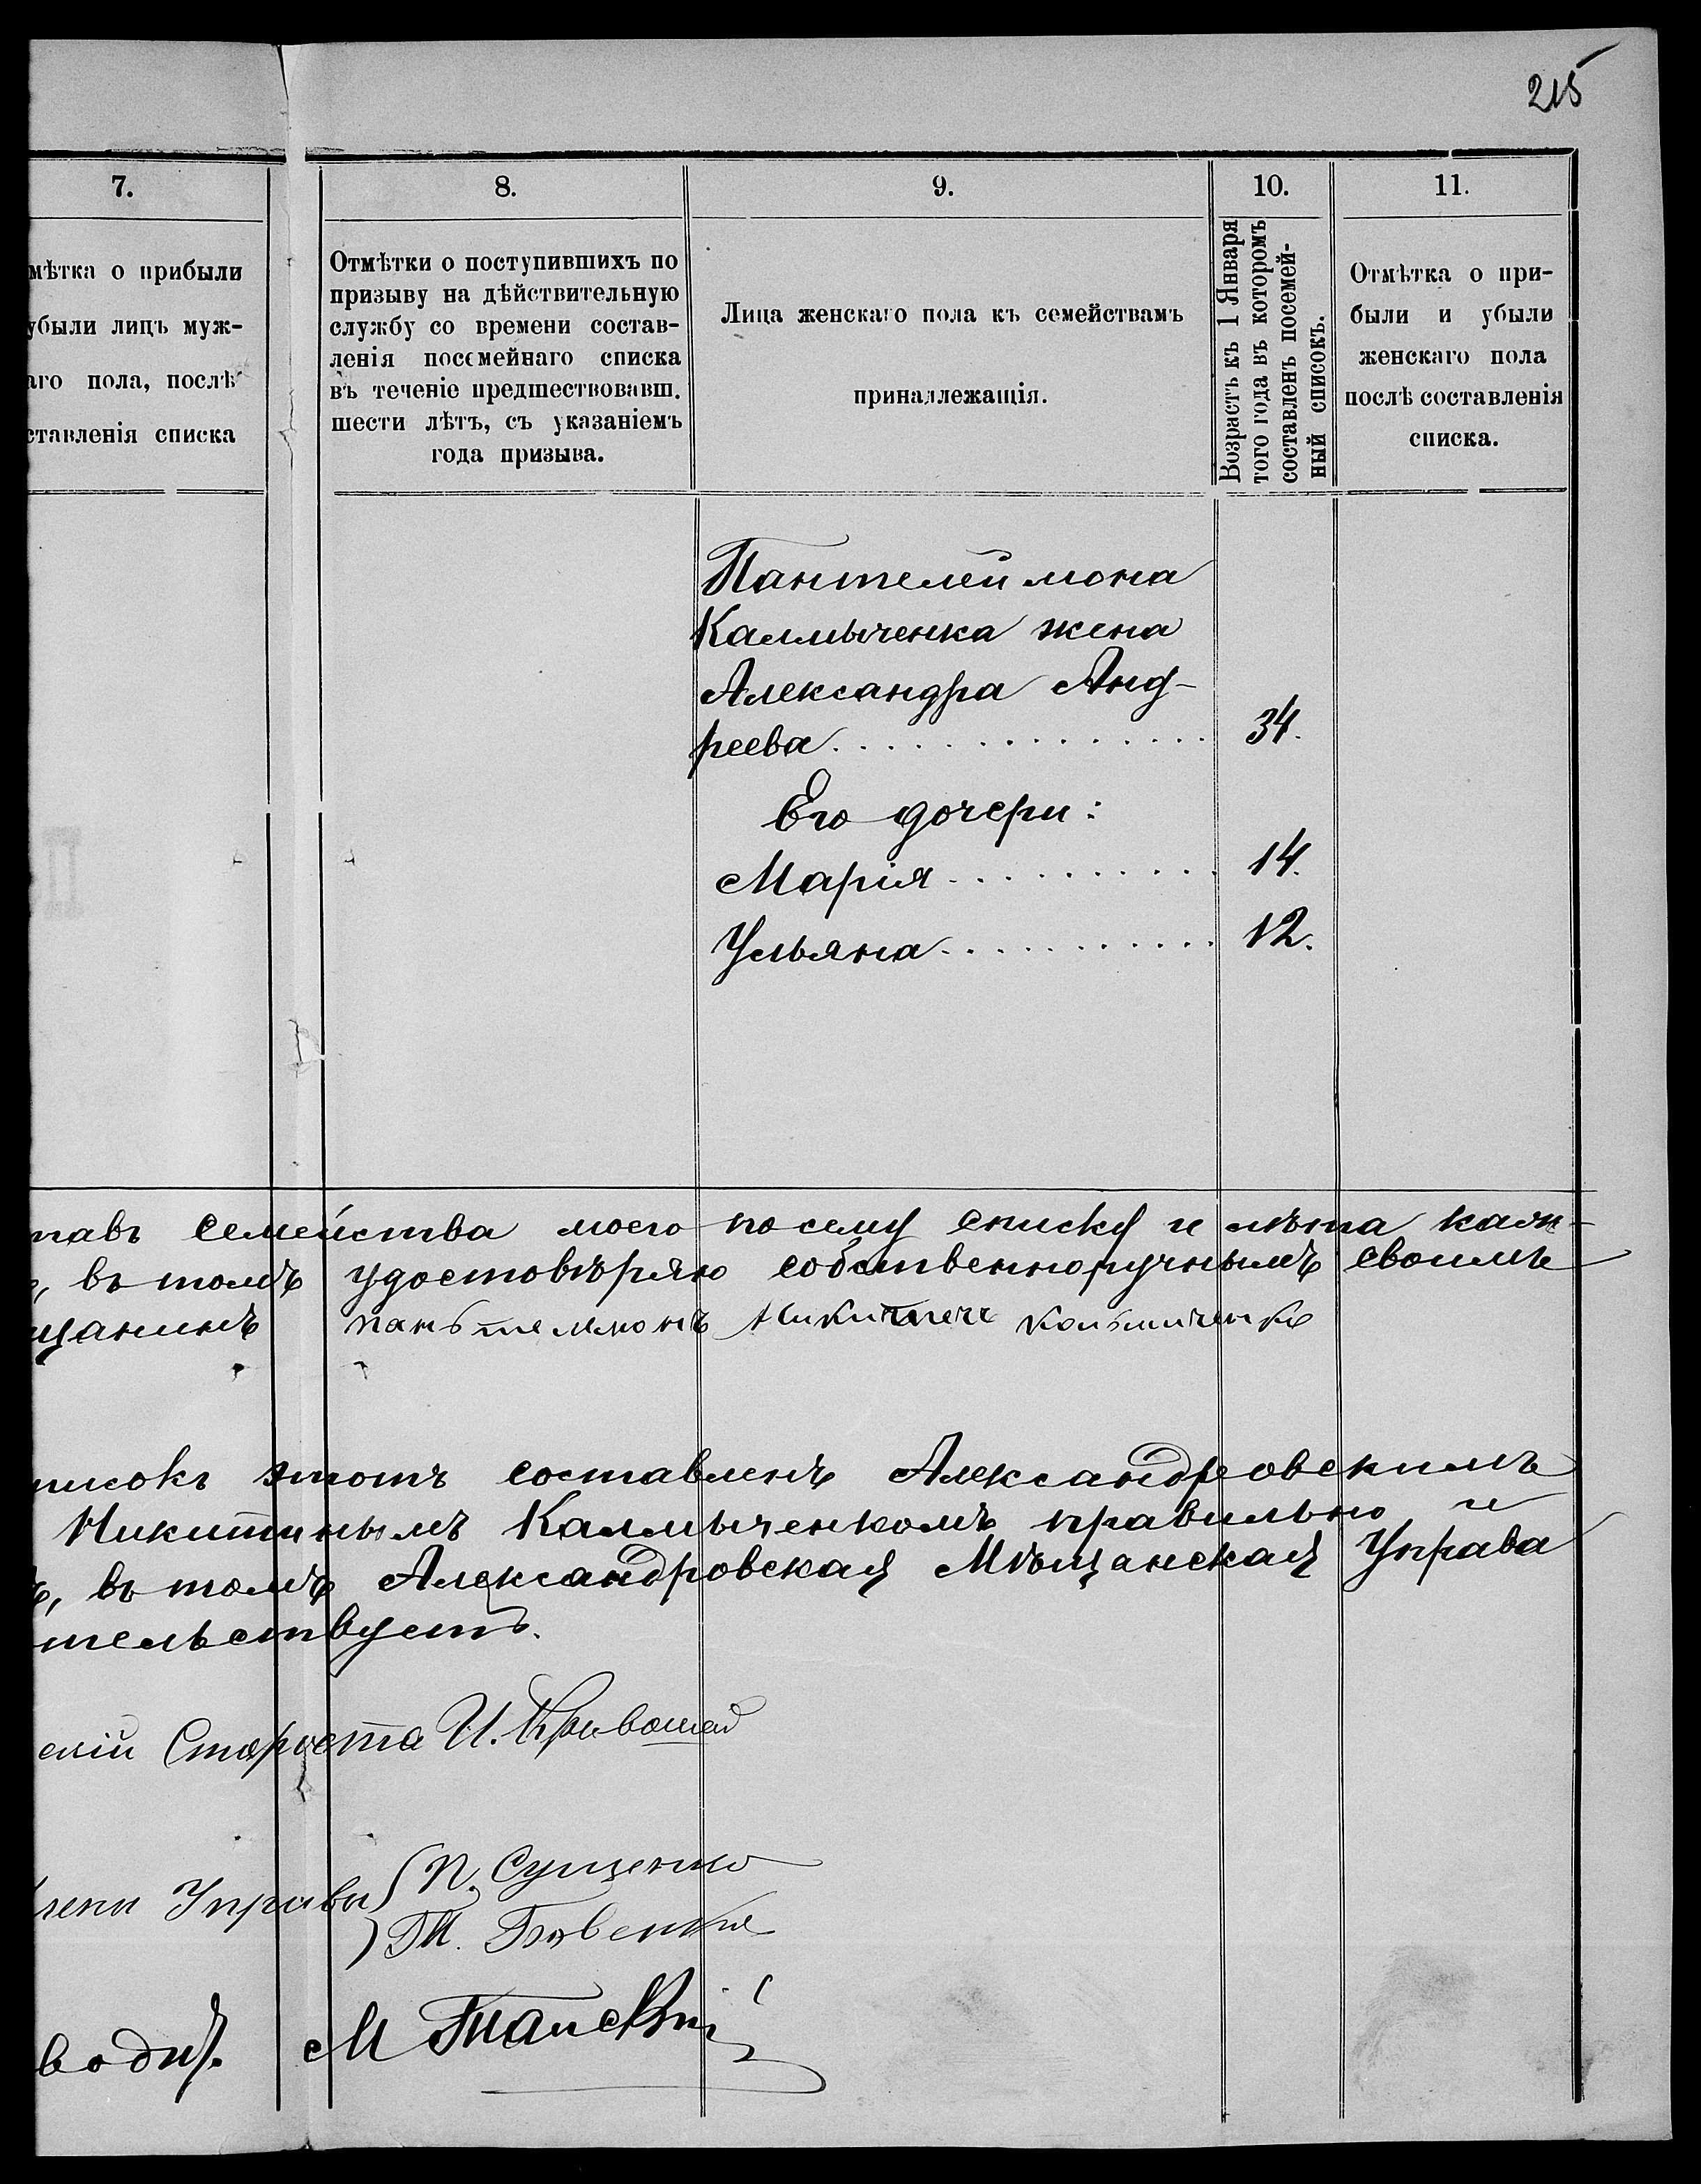 215
7.
8.
9.
10.
11.
мѣтка о прибыли
убыли лицъ муж-
аго пола, послѣ
ставленія списка
Отмѣтки о поступившихъ по
призыву на дѣйствительную
службу со времени состав-
ленія посемейнаго списка
въ теченіе предшествовавш.
шести лѣтъ, съ указаніемъ
года призыва.
Лица женскаго пола къ семействамъ
принадлежащія.
Возрастъ къ 1 Января
того года въ которомъ
составленъ посемей-
ный списокъ.
Отмѣтка о при-
были и убыли
женскаго пола
послѣ составленія
списка.
Пантелеймона
Калмыченка жена
Александра Анд-
реева . . . . . . . . . . . . . . 34.
Его дочери:
Марія . . . . . . . . . . 14.
Ульяна . . . . . . . . . . . 12.
тавъ семейства моего по сему списку и лѣта каж-
, въ томъ удостовѣряю собственноручнымъ своимъ
щанинъ паньтелмонъ Никитечъ
писокъ этотъ составленъ Александровскимъ
Никитинымъ Калмыченкомъ правильно и
ъ, въ томъ Александровская Мѣщанская Управа
тельствуетъ.
скій Староста И. Кривошей
лены Управы П. Сущенко
М
вод